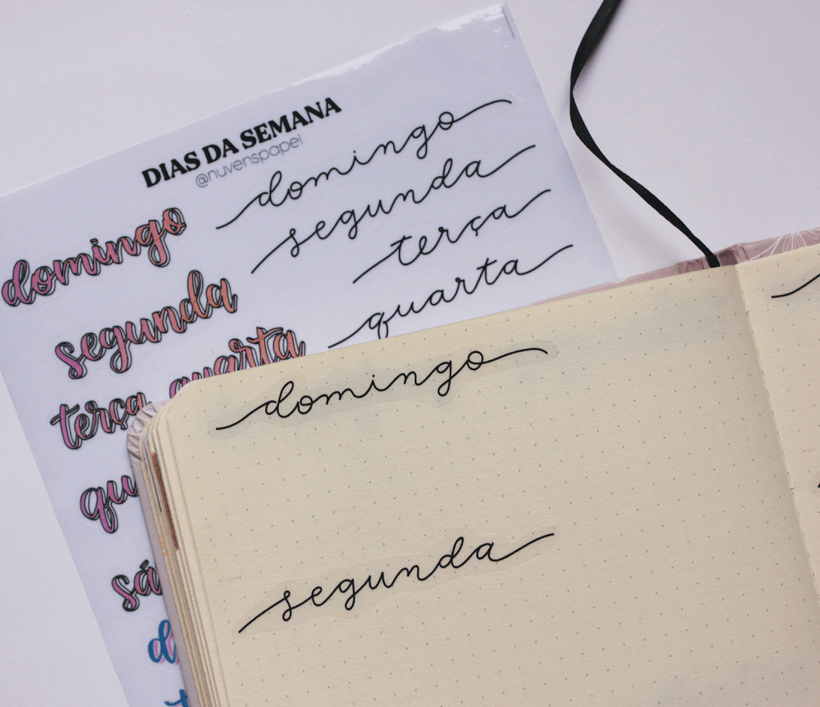 DIAS DA SEMANA
@nuvenspapel
domingo
segunda
terça
quarta
domingo
segunda
terça quarta
domingo
segunda